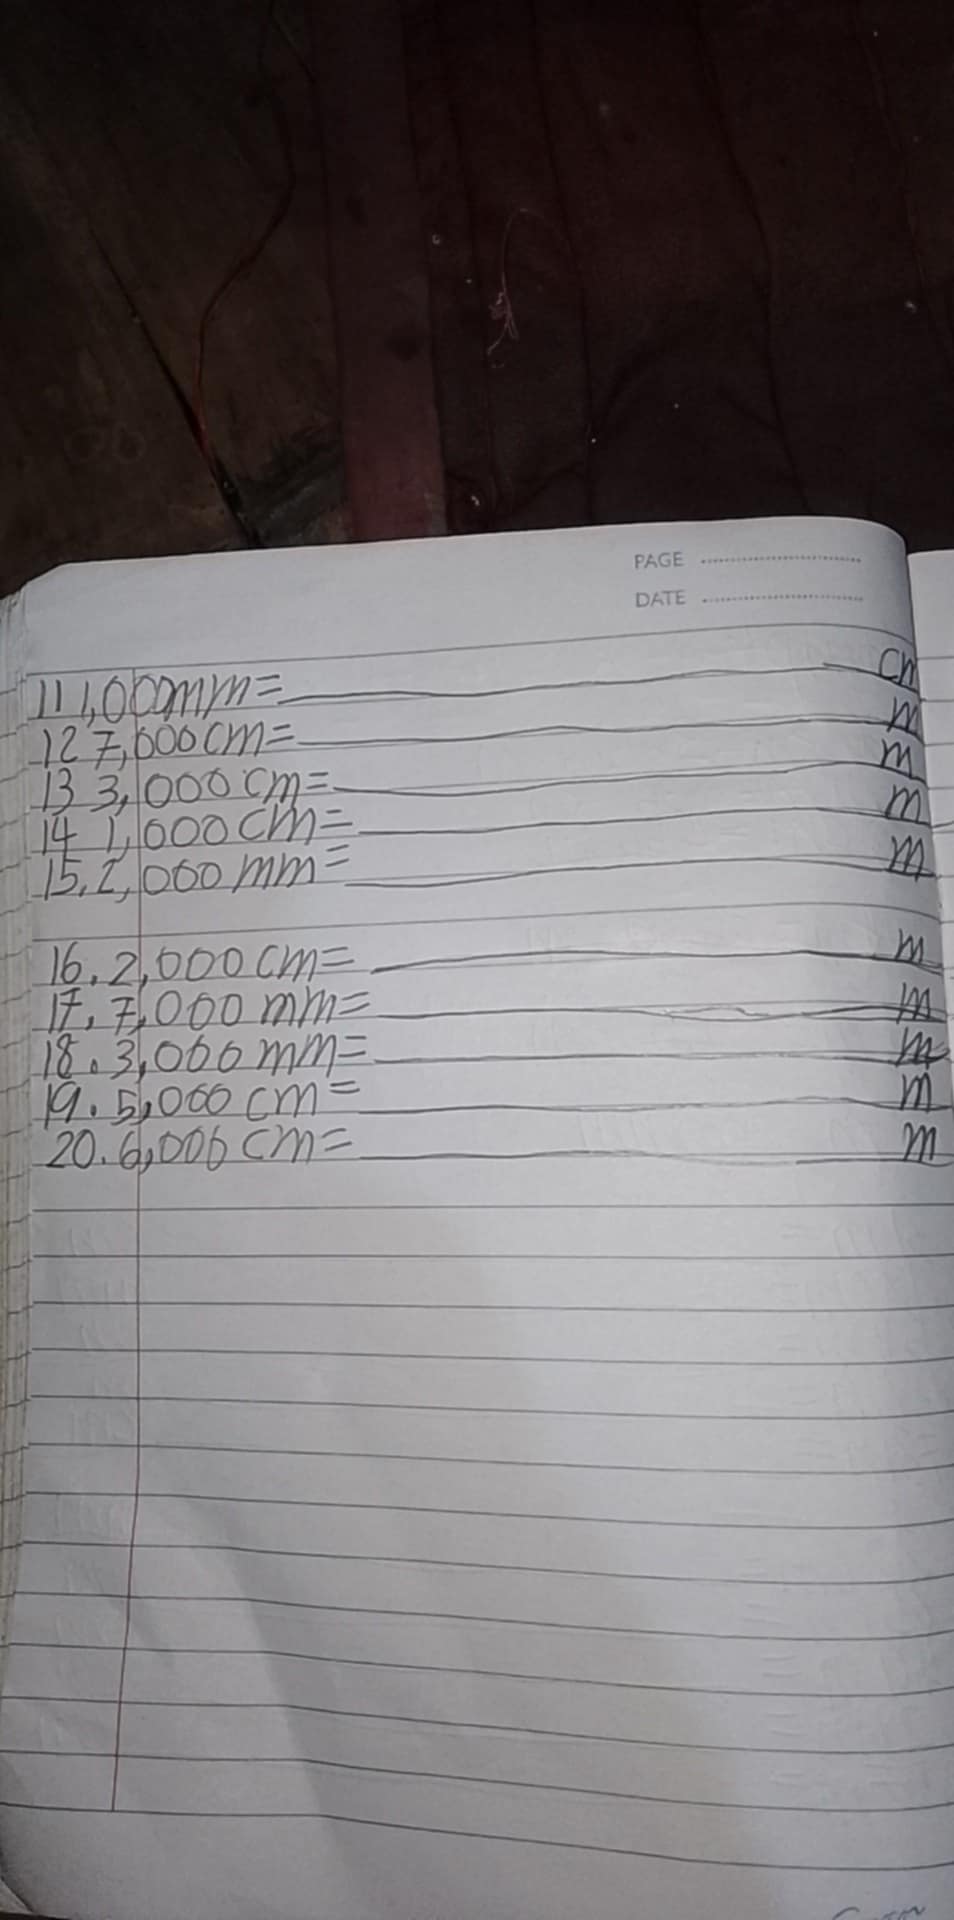 PAGE
DATE
11 1,000mm= cm
12 7,000cm= m
13 3,000 cm= m
14 1,000 cm= m
15. 2,000 mm= m
16. 2,000 cm= m
17. 7,000 mm= m
18. 3,000 mm= m
19. 5,000 cm= m
20. 6,000 cm= m